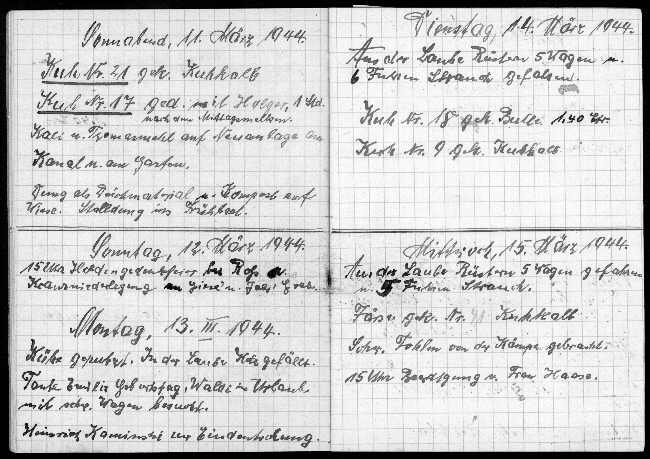 Sonnabend, 11. März 1944.
Kuh Nr. 21 gek. Kuhkalb
Kuh Nr. 17 ged. mit Holger, 1 Std.
nach dem Mittagsmelken.
Kali u. Thomasmehl auf Neuanlage am
Kanal u. am Garten.
Dung als Packmaterial u. Kompost auf
Wiese. Stalldung ins Frühbeet.
Sonntag, 12. März 1944.
15 Uhr Heldengedenkfeier bei
Kranzniederlegung u. Grab.
Montag, 13. III. 1944.
Kühe geputzt. In der Laube Holz gefällt.
Tante Emilie Geburtstag, Waldi in Urlaub
mit schw. Wagen besucht.
Heinrich Kaminski zur Eindeutschung.
Dienstag, 14. März 1944.
Aus der Laube Rüstern 5 Wagen u.
6 Fuhren Strauch gefahren.
Kuh Nr. 18 gek. Bulle 1,40 Ztr.
Kuh Nr. 9 gek. Kuhkalb
Mittwoch, 15. März 1944.
Aus der Laube Rüstern 5 Wagen gefahren
u. 5 Fuhren Strauch.
Färse gek. Nr. Kuhkalb
Schw. Fohlen von der Kämpe gebracht.
15 Uhr Beerdigung v. Frau Haase.